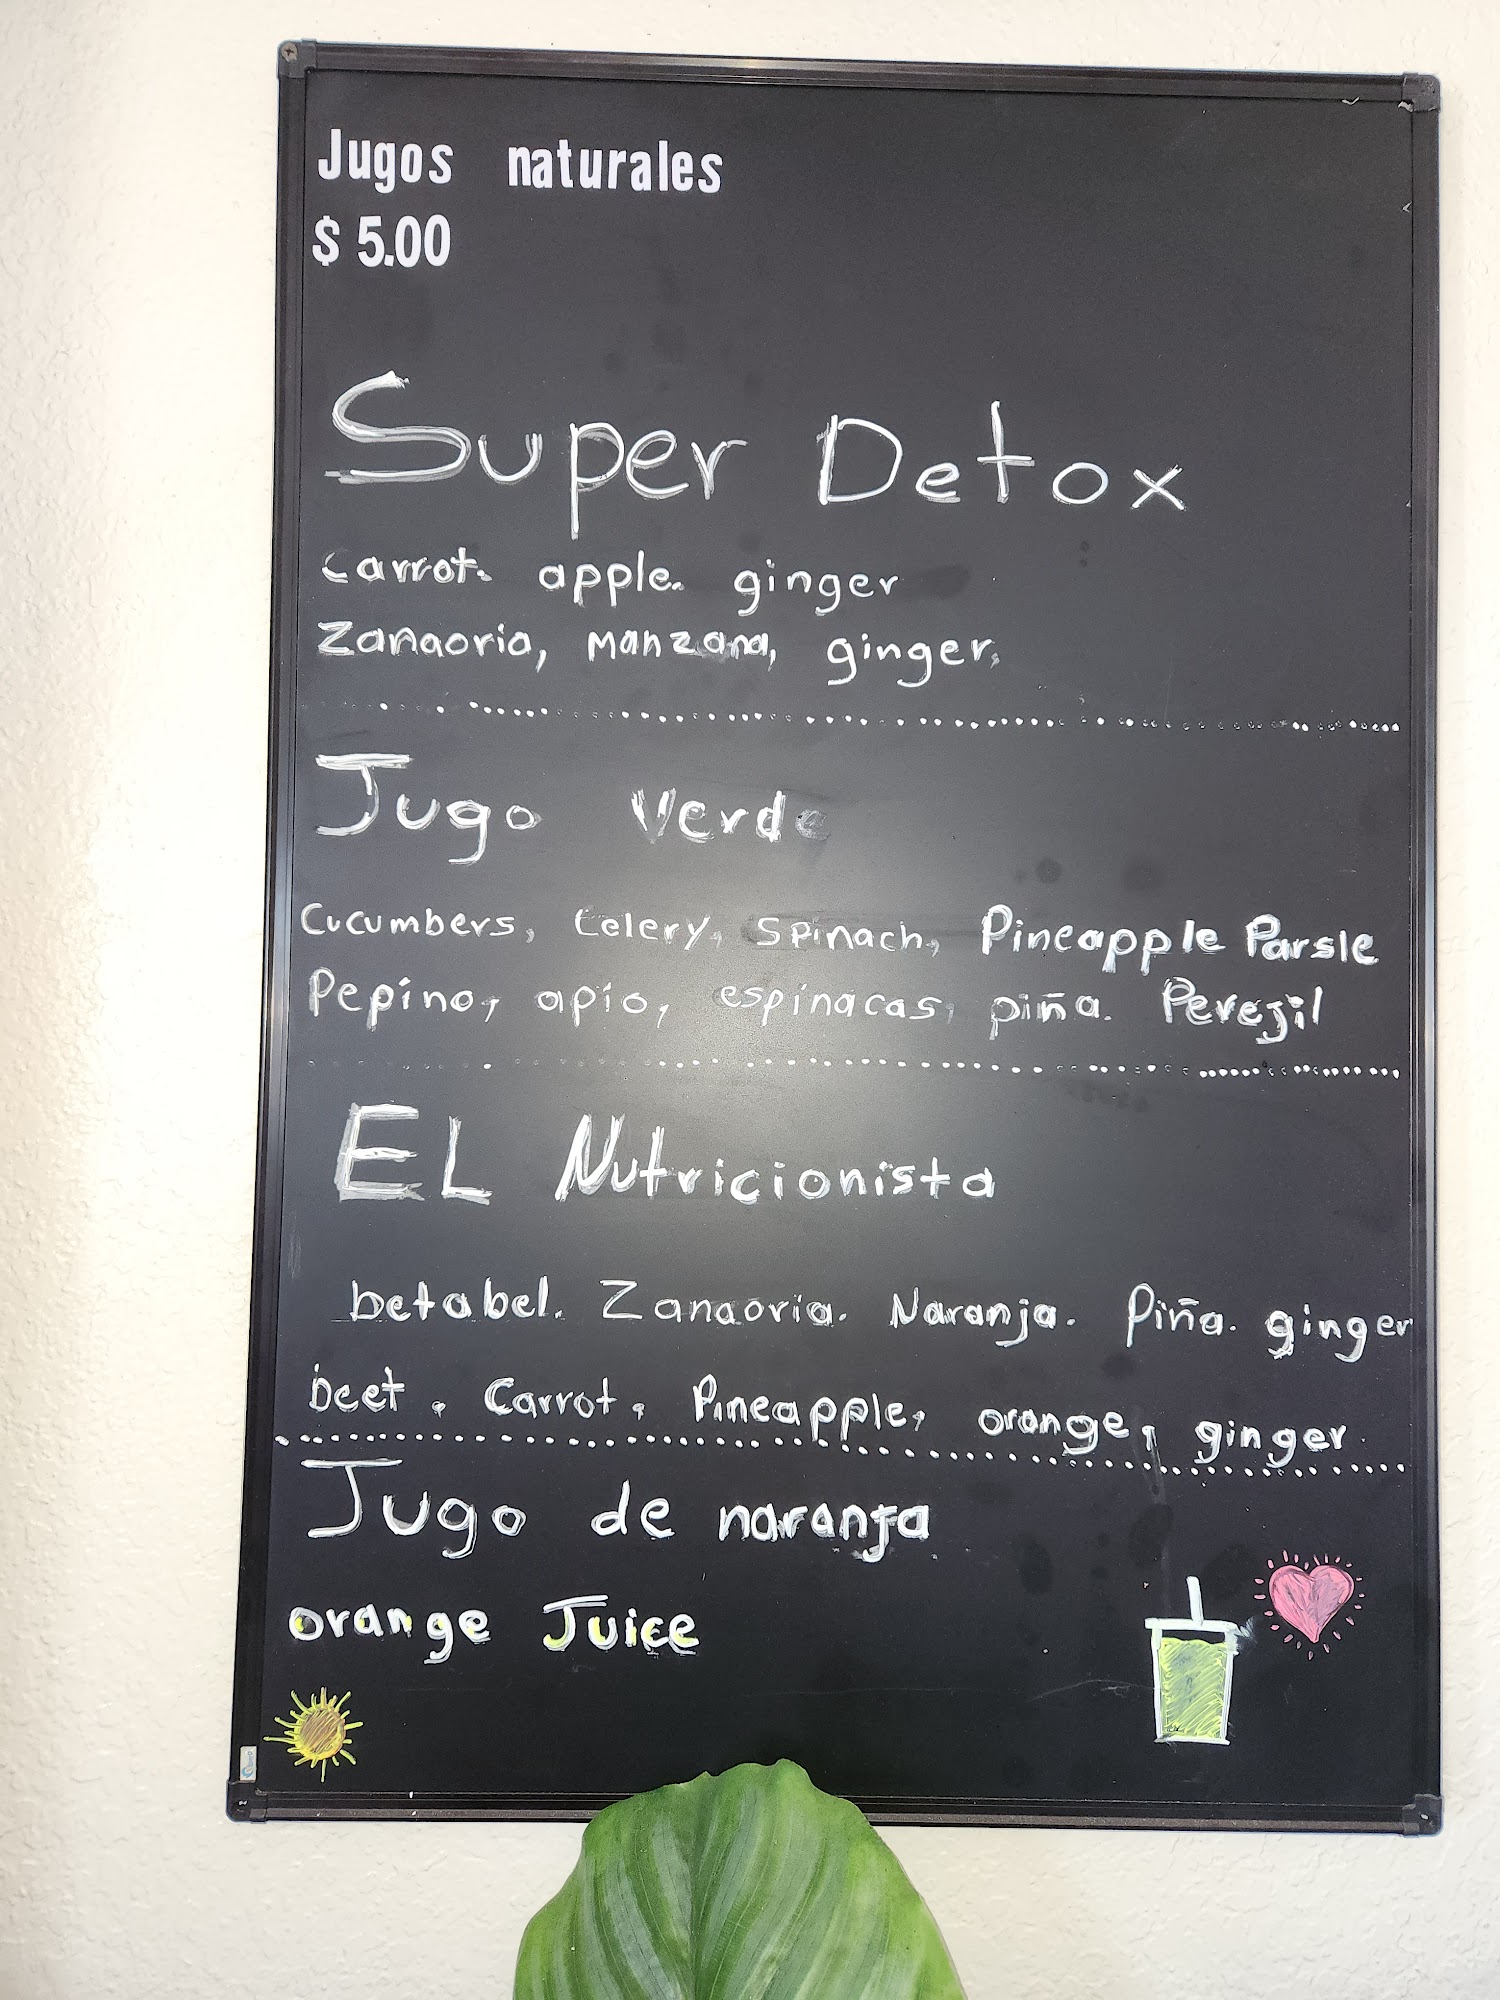 Jugos naturales
$ 5.00
Super Detox
carrot. apple. ginger
Zanaoria, Manzana, ginger,
Jugo Verde
Cucumbers, Celery, Spinach, Pineapple Parsle
Pepino, apio, espinacas, piña. Perejil
EL Nutricionista
betabel. Zanaoria. Naranja. Piña. ginger
beet. Carrot. Pineapple, orange, ginger
Jugo de naranja
orange Juice